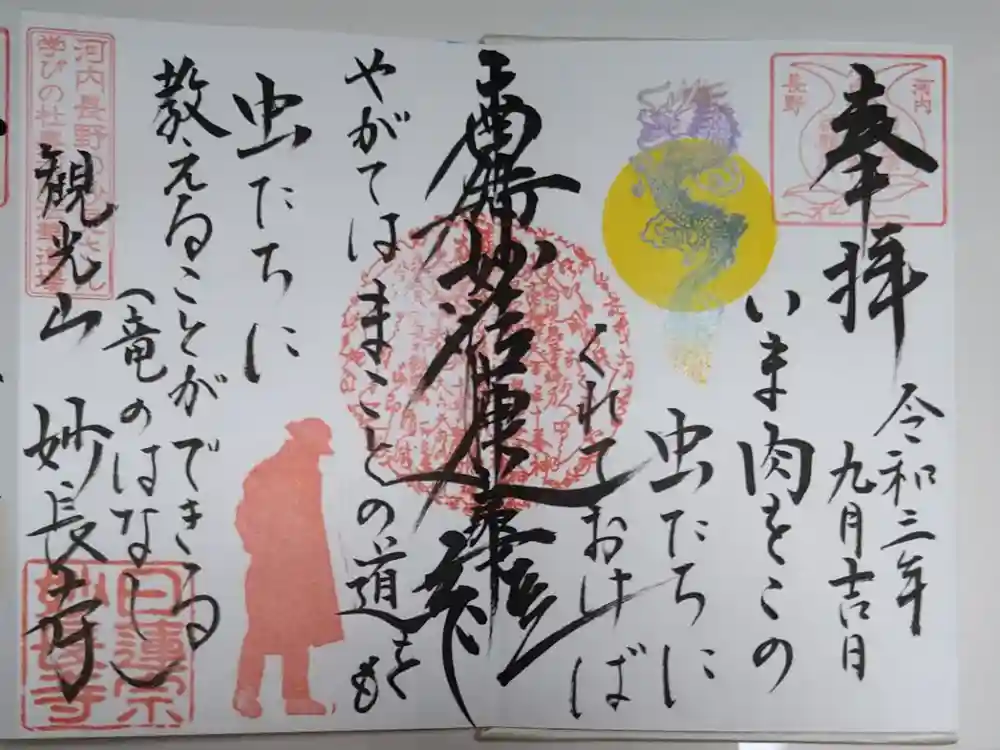 奉拝
河内
長野
令和三年
九月吉日
いま肉をこの
虫たちに
くれておけば
南無妙法蓮華経
やがてはまことの道をも
虫たちに
教えることができる
(竜のはなし)
観光山 妙長寺
河内長野の
学びの杜
日蓮宗
妙長寺